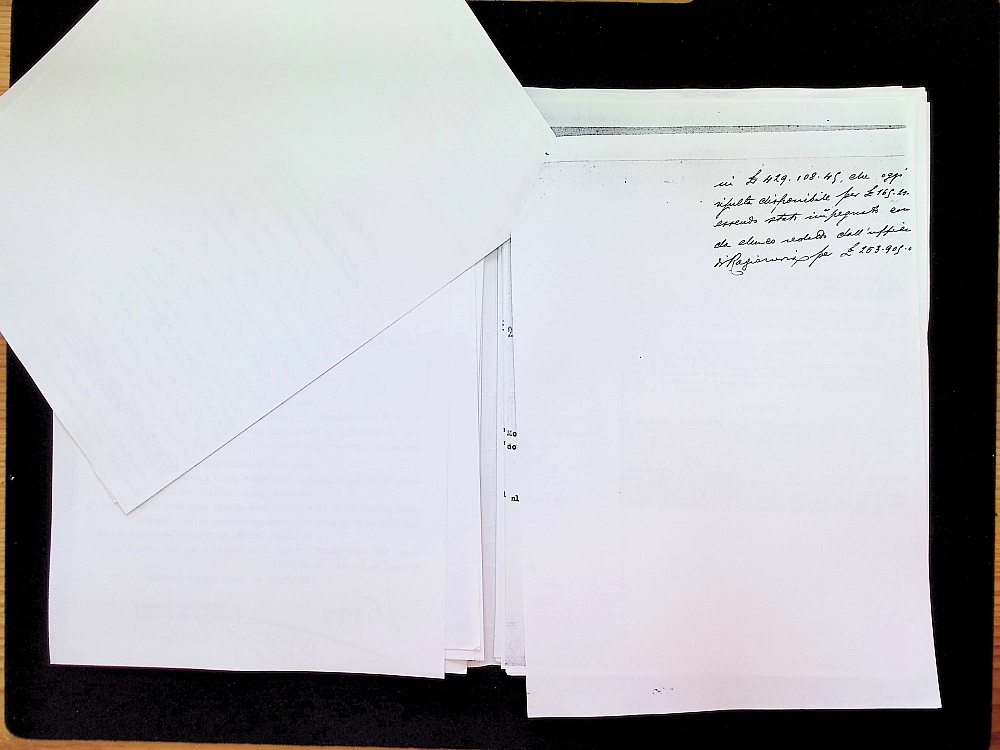 in £ 429.108.45, che oggi
risulta disponibile per £ 165.20.
essendo stati impegnati con
da elenco redatto dall'uffici
di Ragioneria per £ 253.905.
2
Mo
do
nl